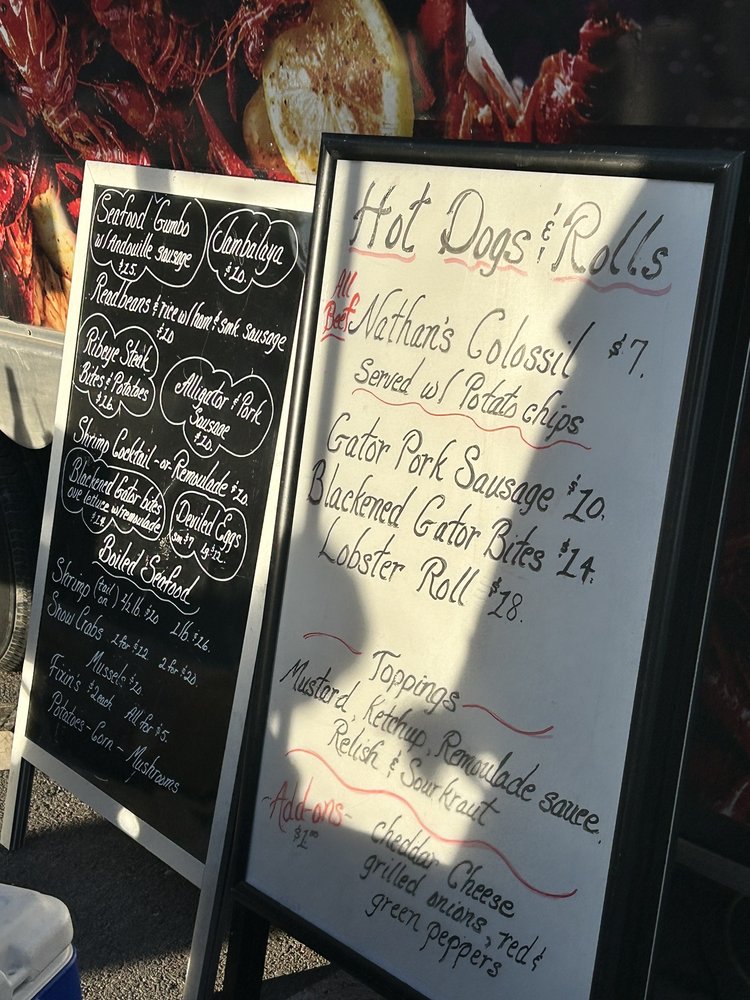 Seafood Gumbo
w/Andouille sausage
$15.
Jambalaya
$10.
Readbeans & rice w/ham & smk sausage
$10
Ribeye Steak
Bites & Potatoes
$16.
Alligator & Pork
Sausage
$10.
Shrimp Cocktail -or- Remoulade $10.
Blackened Gator bites
ove lettuce w/remoulade
$14
Deviled Eggs
sm $7 lg $12
Boiled Seafood
Shrimp (tail on) 1/2 lb. $10 1 lb. $16.
Snow Crabs 1 for $12 2 for $20.
Mussels $10.
Fixin's $2 each All for $5.
Potatoes - Corn - Mushrooms
Hot Dogs & Rolls
All
Beef
Nathan's Colossil $7.
Served w/ Potato chips
Gator Pork Sausage $10.
Blackened Gator Bites $14.
Lobster Roll $18.
Toppings
Mustard, Ketchup, Remoulade sauce.
Relish & Sourkraut
-Add-ons-
$1.00
cheddar Cheese
grilled onions, red &
green peppers